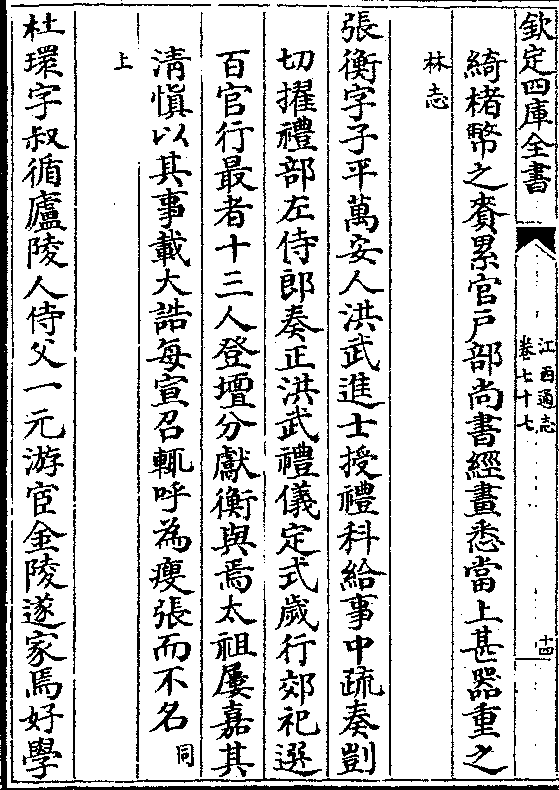 欽定四庫全書
江西通志
卷七十七
十四
綺楮幣之賚累官戶部尚書經畫悉當上甚器重之
林志
張衡字子平萬安人洪武進士授禮科給事中疏奏剴
切擢禮部左侍郎奏正洪武禮儀定式歲行郊祀選
百官行最者十三人登壇分獻衡與焉太祖屢嘉其
清慎以其事載大誥每宣召輒呼為瘦張而不名同
上
杜環字叔循廬陵人侍父一元游宦金陵遂家焉好學